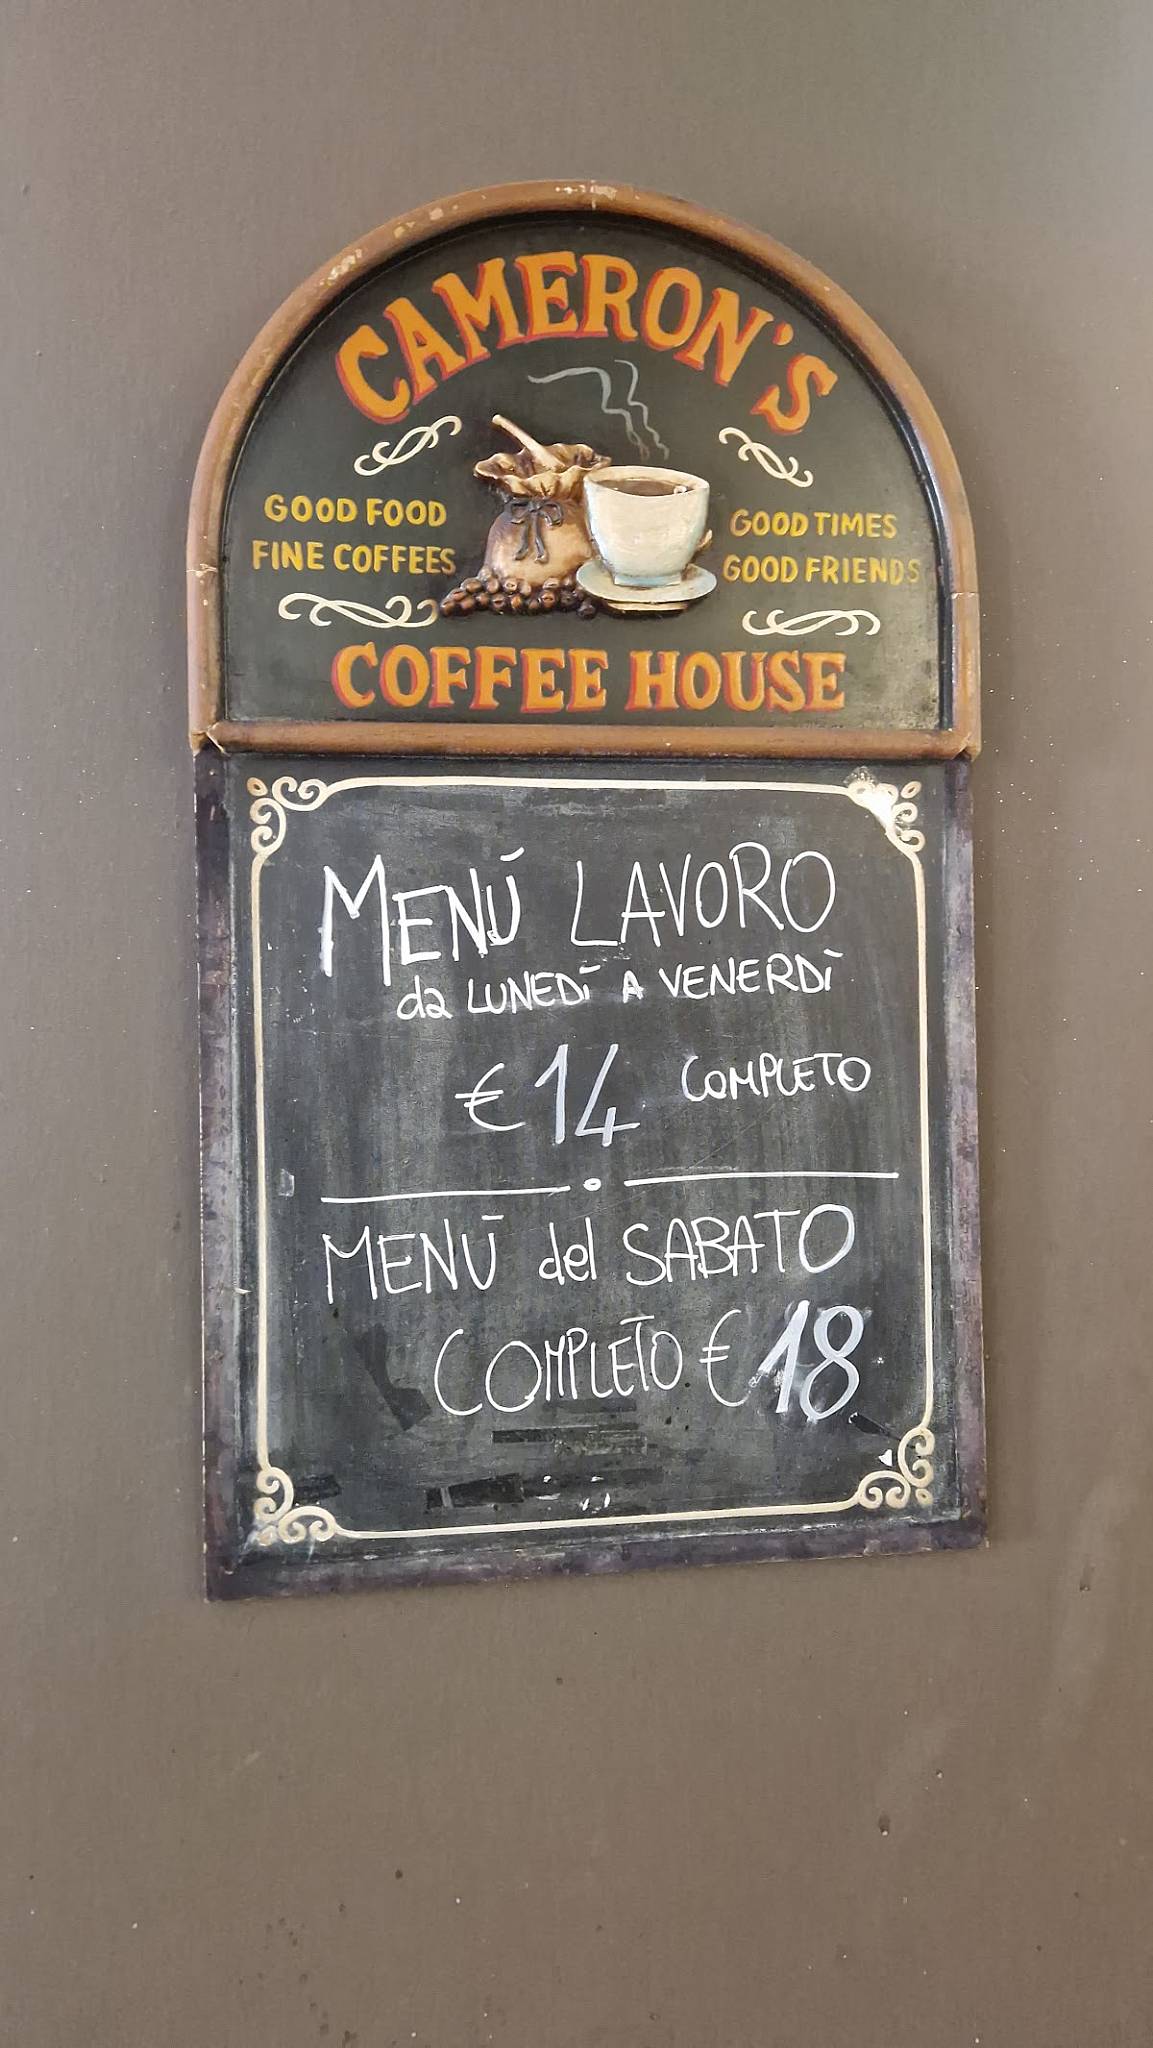 CAMERON'S
GOOD FOOD
FINE COFFEES
GOOD TIMES
GOOD FRIENDS
COFFEE HOUSE
MENÚ LAVORO
da LUNEDÌ A VENERDÌ
€ 14 COMPLETO
MENŪ del SABATO
COMPLETO € 18